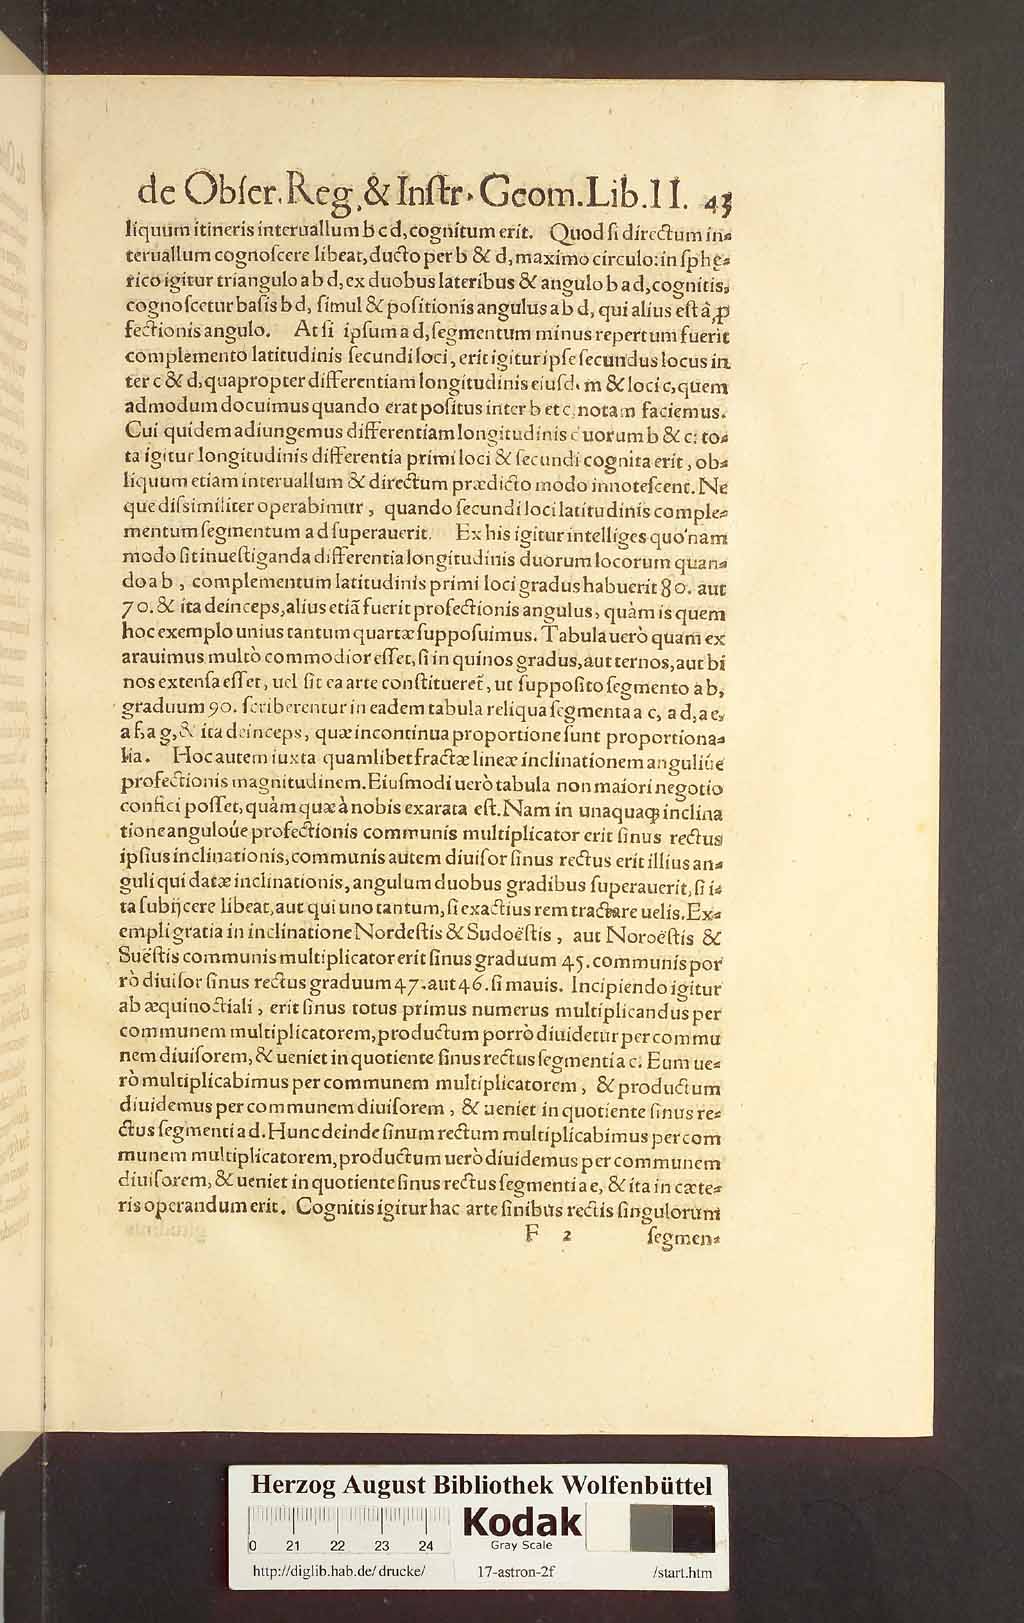 de Obſer. Reg. & Inſtr. Geom. Lib. II. 43
liquum itineris interuallum b c d, cognitum erit. Quod ſi directum in-
teruallum cognoſcere libeat, ducto per b & d, maximo circulo: in ſphę-
rico igitur triangulo a b d, ex duobus lateribus & angulo b a d, cognitis,
cognoſcetur baſis b d, ſimul & poſitionis angulus a b d, qui alius eſt â ꝓ
fectionis angulo. At ſi ipſum a d, ſegmentum minus repertum fuerit
complemento latitudinis ſecundi loci, erit igitur ipſe ſecundus locus in
ter c & d, quapropter differentiam longitudinis eiuſd. m & loci c, quem
admodum docuimus quando erat poſitus inter b et c, notam faciemus.
Cui quidem adiungemus differentiam longitudinis duorum b & c: to-
ta igitur longitudinis differentia primi loci & ſecundi cognita erit, ob-
liquum etiam interuallum & directum prædicto modo innoteſcent. Ne
que diſsimiliter operabimur, quando ſecundi loci latitudinis comple-
mentum ſegmentum a d ſuperauerit. Ex his igitur intelliges quo'nam
modo ſit inueſtiganda differentia longitudinis duorum locorum quan-
do a b, complementum latitudinis primi loci gradus habuerit 80. aut
70. & ita deinceps, alius etiã fuerit profectionis angulus, quàm is quem
hoc exemplo unius tantum quartæ ſuppoſuimus. Tabula uerò quam ex
arauimus multò commodior eſſet, ſi in quinos gradus, aut ternos, aut bi
nos extenſa eſſet, uel ſit ea arte conſtitueret̃, ut ſuppoſito ſegmento a b,
graduum 90. ſcriberentur in eadem tabula reliqua ſegmenta a c, a d, a e,
a f, a g, & ita deinceps, quæ in continua proportione ſunt proportiona-
lia. Hoc autem iuxta quamlibet fractæ lineæ inclinationem anguliúe
profectionis magnitudinem. Eiuſmodi uerò tabula non maiori negotio
confici poſſet, quàm quæ à nobis exarata eſt. Nam in unaquaqꝫ inclina
tione anguloúe profectionis communis multiplicator erit ſinus rectus
ipſius inclinationis, communis autem diuiſor ſinus rectus erit illius an-
guli qui datæ inclinationis, angulum duobus gradibus ſuperauerit, ſi i-
ta ſubijcere libeat, aut qui uno tantum, ſi exactius rem tractare uelis. Ex-
empli gratia in inclinatione Nordeſtis & Sudoëſtis, aut Noroëſtis &
Suëſtis communis multiplicator erit ſinus graduum 45. communis por
rò diuiſor ſinus rectus graduum 47. aut 46. ſi mauis. Incipiendo igitur
ab æquinoctiali, erit ſinus totus primus numerus multiplicandus per
communem multiplicatorem, productum porrò diuidetur per commu
nem diuiſorem, & ueniet in quotiente ſinus rectus ſegmenti a c. Eum ue-
rò multiplicabimus per communem multiplicatorem, & productum
diuidemus per communem diuiſorem, & ueniet in quotiente ſinus re-
ctus ſegmenti a d. Hunc deinde ſinum rectum multiplicabimus per com
munem multiplicatorem, productum uerò diuidemus per communem
diuiſorem, & ueniet in quotiente ſinus rectus ſegmenti a e, & ita in cæte-
ris operandum erit. Cognitis igitur hac arte ſinibus rectis ſingulorum
F 2 ſegmen-
Herzog August Bibliothek Wolfenbüttel
0 21 22 23 24
Kodak
Gray Scale
http://diglib.hab.de/drucke/ 17-astron-2f /start.htm